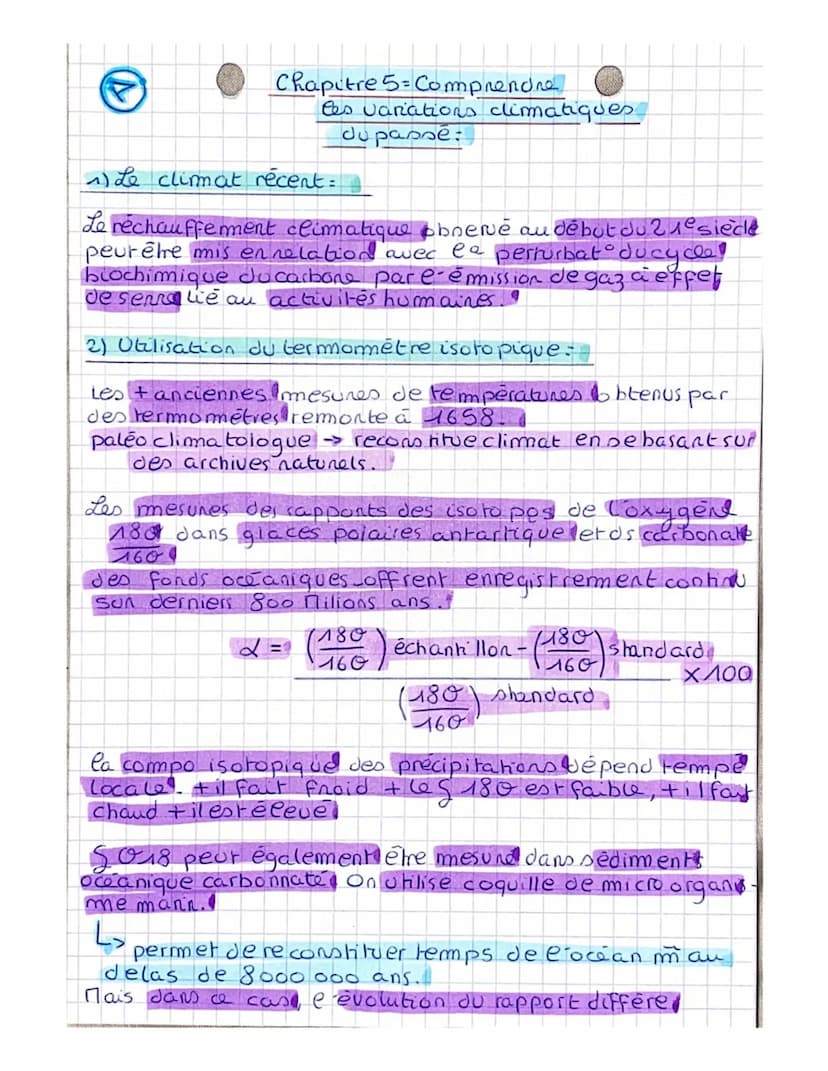 P
Chapitre 5 = Comprendre
les variations climatiques
du passé :
1) Le climat récent :
Le réchauffement climatique observé au début du 21e siècle
peut être mis en relation avec la perturbat° du cycle
biochimique du carbone par l'émission de gaz à effet
de serre lié au activités humaines.
2) Utilisation du termomètre isotopique :
Les + anciennes mesures de températures obtenus par
des termomètres remonte à 1658.
paléoclimatologue → reconstitue climat en se basant sur
des archives naturels.
Les mesures des rapports des isotopes de l'oxygène
18O/16O dans glaces polaires antartique et ds carbonate
des fonds océaniques offrent enregistrement continu
sur derniers 800 Milions ans.
α = (18O/16O) échantillon - (18O/16O) standard × 100
(18O/16O) standard
la compo isotopique des précipitations dépend tempé
locale. + il fait froid + le δ 18O est faible, + il fait
chaud + il est élevé
δ O18 peut également être mesuré dans sédiments
océanique carbonnaté. On utilise coquille de micro organis-
me marin.
↳ permet de reconstituer temps de l'océan m̄ au
delas de 8000 000 ans.
Mais dans ce cas, l'évolution du rapport diffère